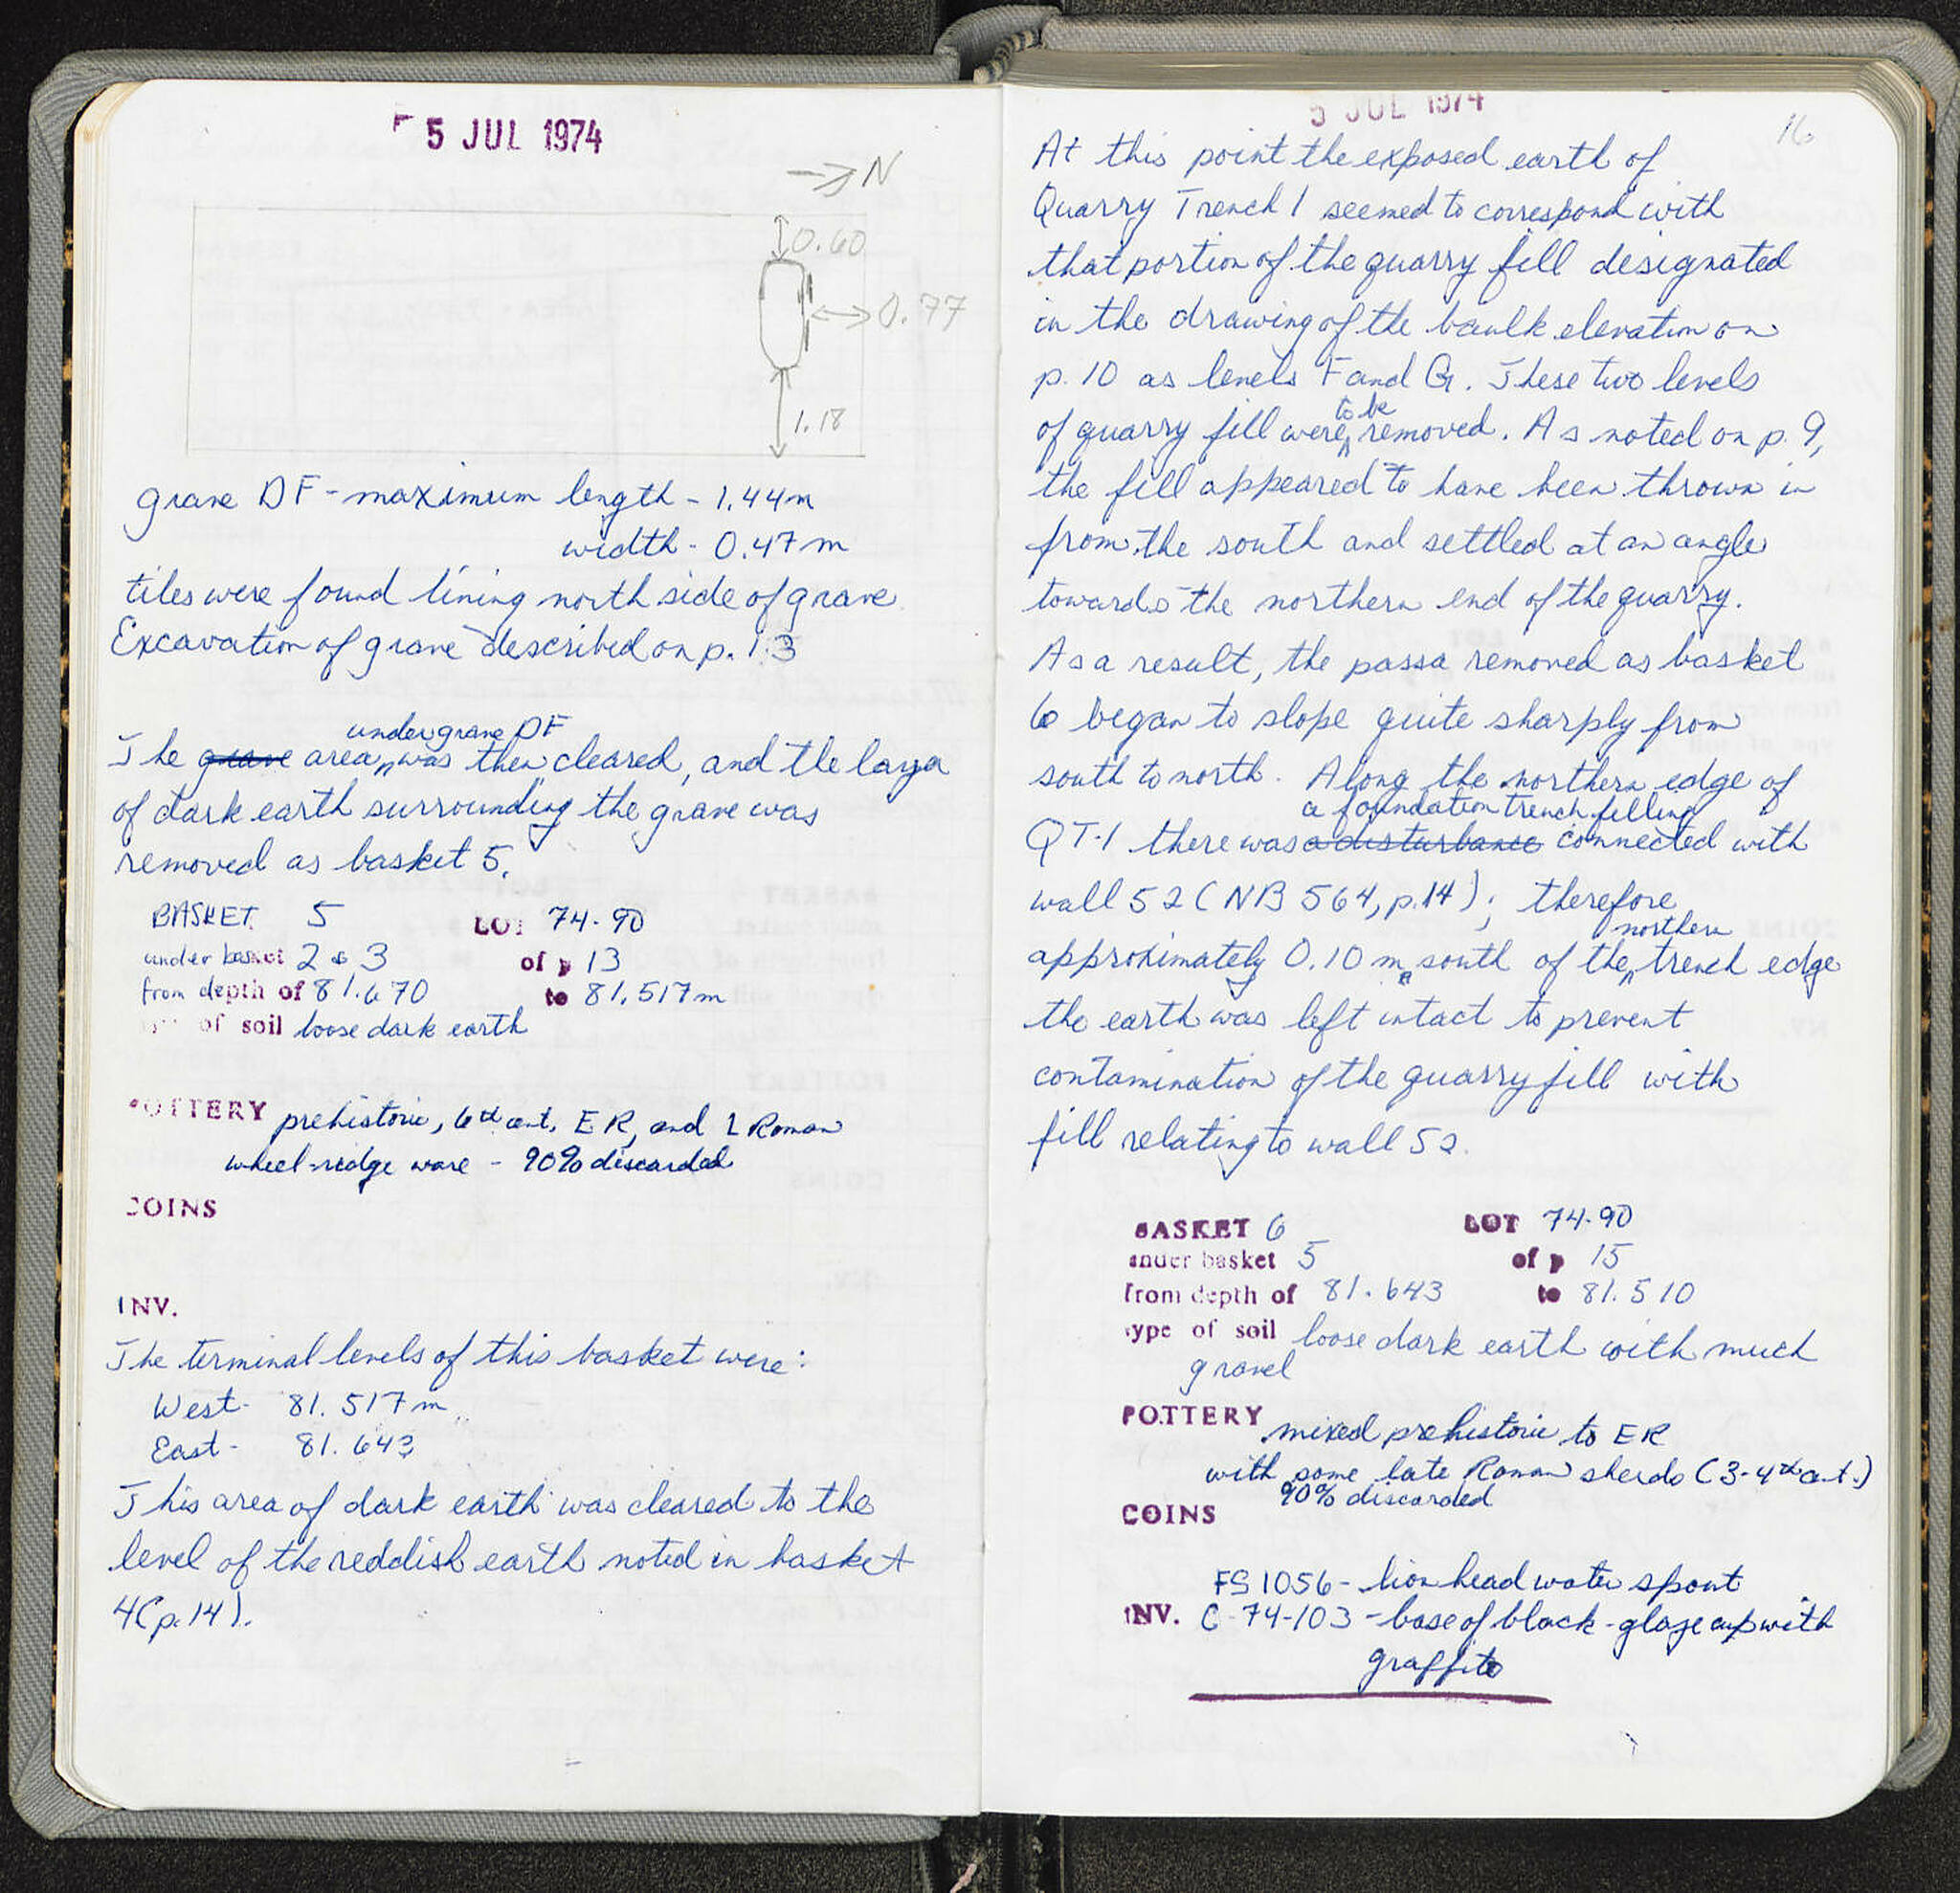 5 JUL 1974
→ N
0.60
0.77
1.18
grave DF - maximum length - 1.44m
width - 0.47m
tiles were found lining north side of grave
Excavation of grave described on p. 13
under grave DF
The grave area was then cleared, and the layer
of dark earth surrounding the grave was
removed as basket 5.
BASKET 5 LOT 74-90
under basket 2 & 3 of p 13
from depth of 81.670 to 81.517m
of soil loose dark earth
POTTERY prehistoric, 6th cent, ER, and L Roman
wheel-ridge ware - 90% discarded
COINS
INV.
The terminal levels of this basket were:
West - 81.517m
East - 81.643
This area of dark earth was cleared to the
level of the reddish earth noted in basket
4 (p. 14).
5 JUL 1974
16
At this point the exposed earth of
Quarry Trench 1 seemed to correspond with
that portion of the quarry fill designated
in the drawing of the baulk elevation on
p. 10 as levels F and G. These two levels
to be
of quarry fill were removed. As noted on p. 9,
the fill appeared to have been thrown in
from the south and settled at an angle
towards the northern end of the quarry.
As a result, the passa removed as basket
6 began to slope quite sharply from
south to north. Along the northern edge of
a foundation trench filling
QT-1 there was a disturbance connected with
wall 52 (NB 564, p. 14); therefore
northern
approximately 0.10 m south of the trench edge
the earth was left intact to prevent
contamination of the quarry fill with
fill relating to wall 52.
BASKET 6 LOT 74-90
under basket 5 of p 15
from depth of 81.643 to 81.510
type of soil loose dark earth with much
gravel
POTTERY mixed prehistoric to ER
with some late Roman sherds (3-4th cent.)
90% discarded
COINS
FS 1056 - lion head water spout
INV. C-74-103 - base of black-glaze cup with
graffito